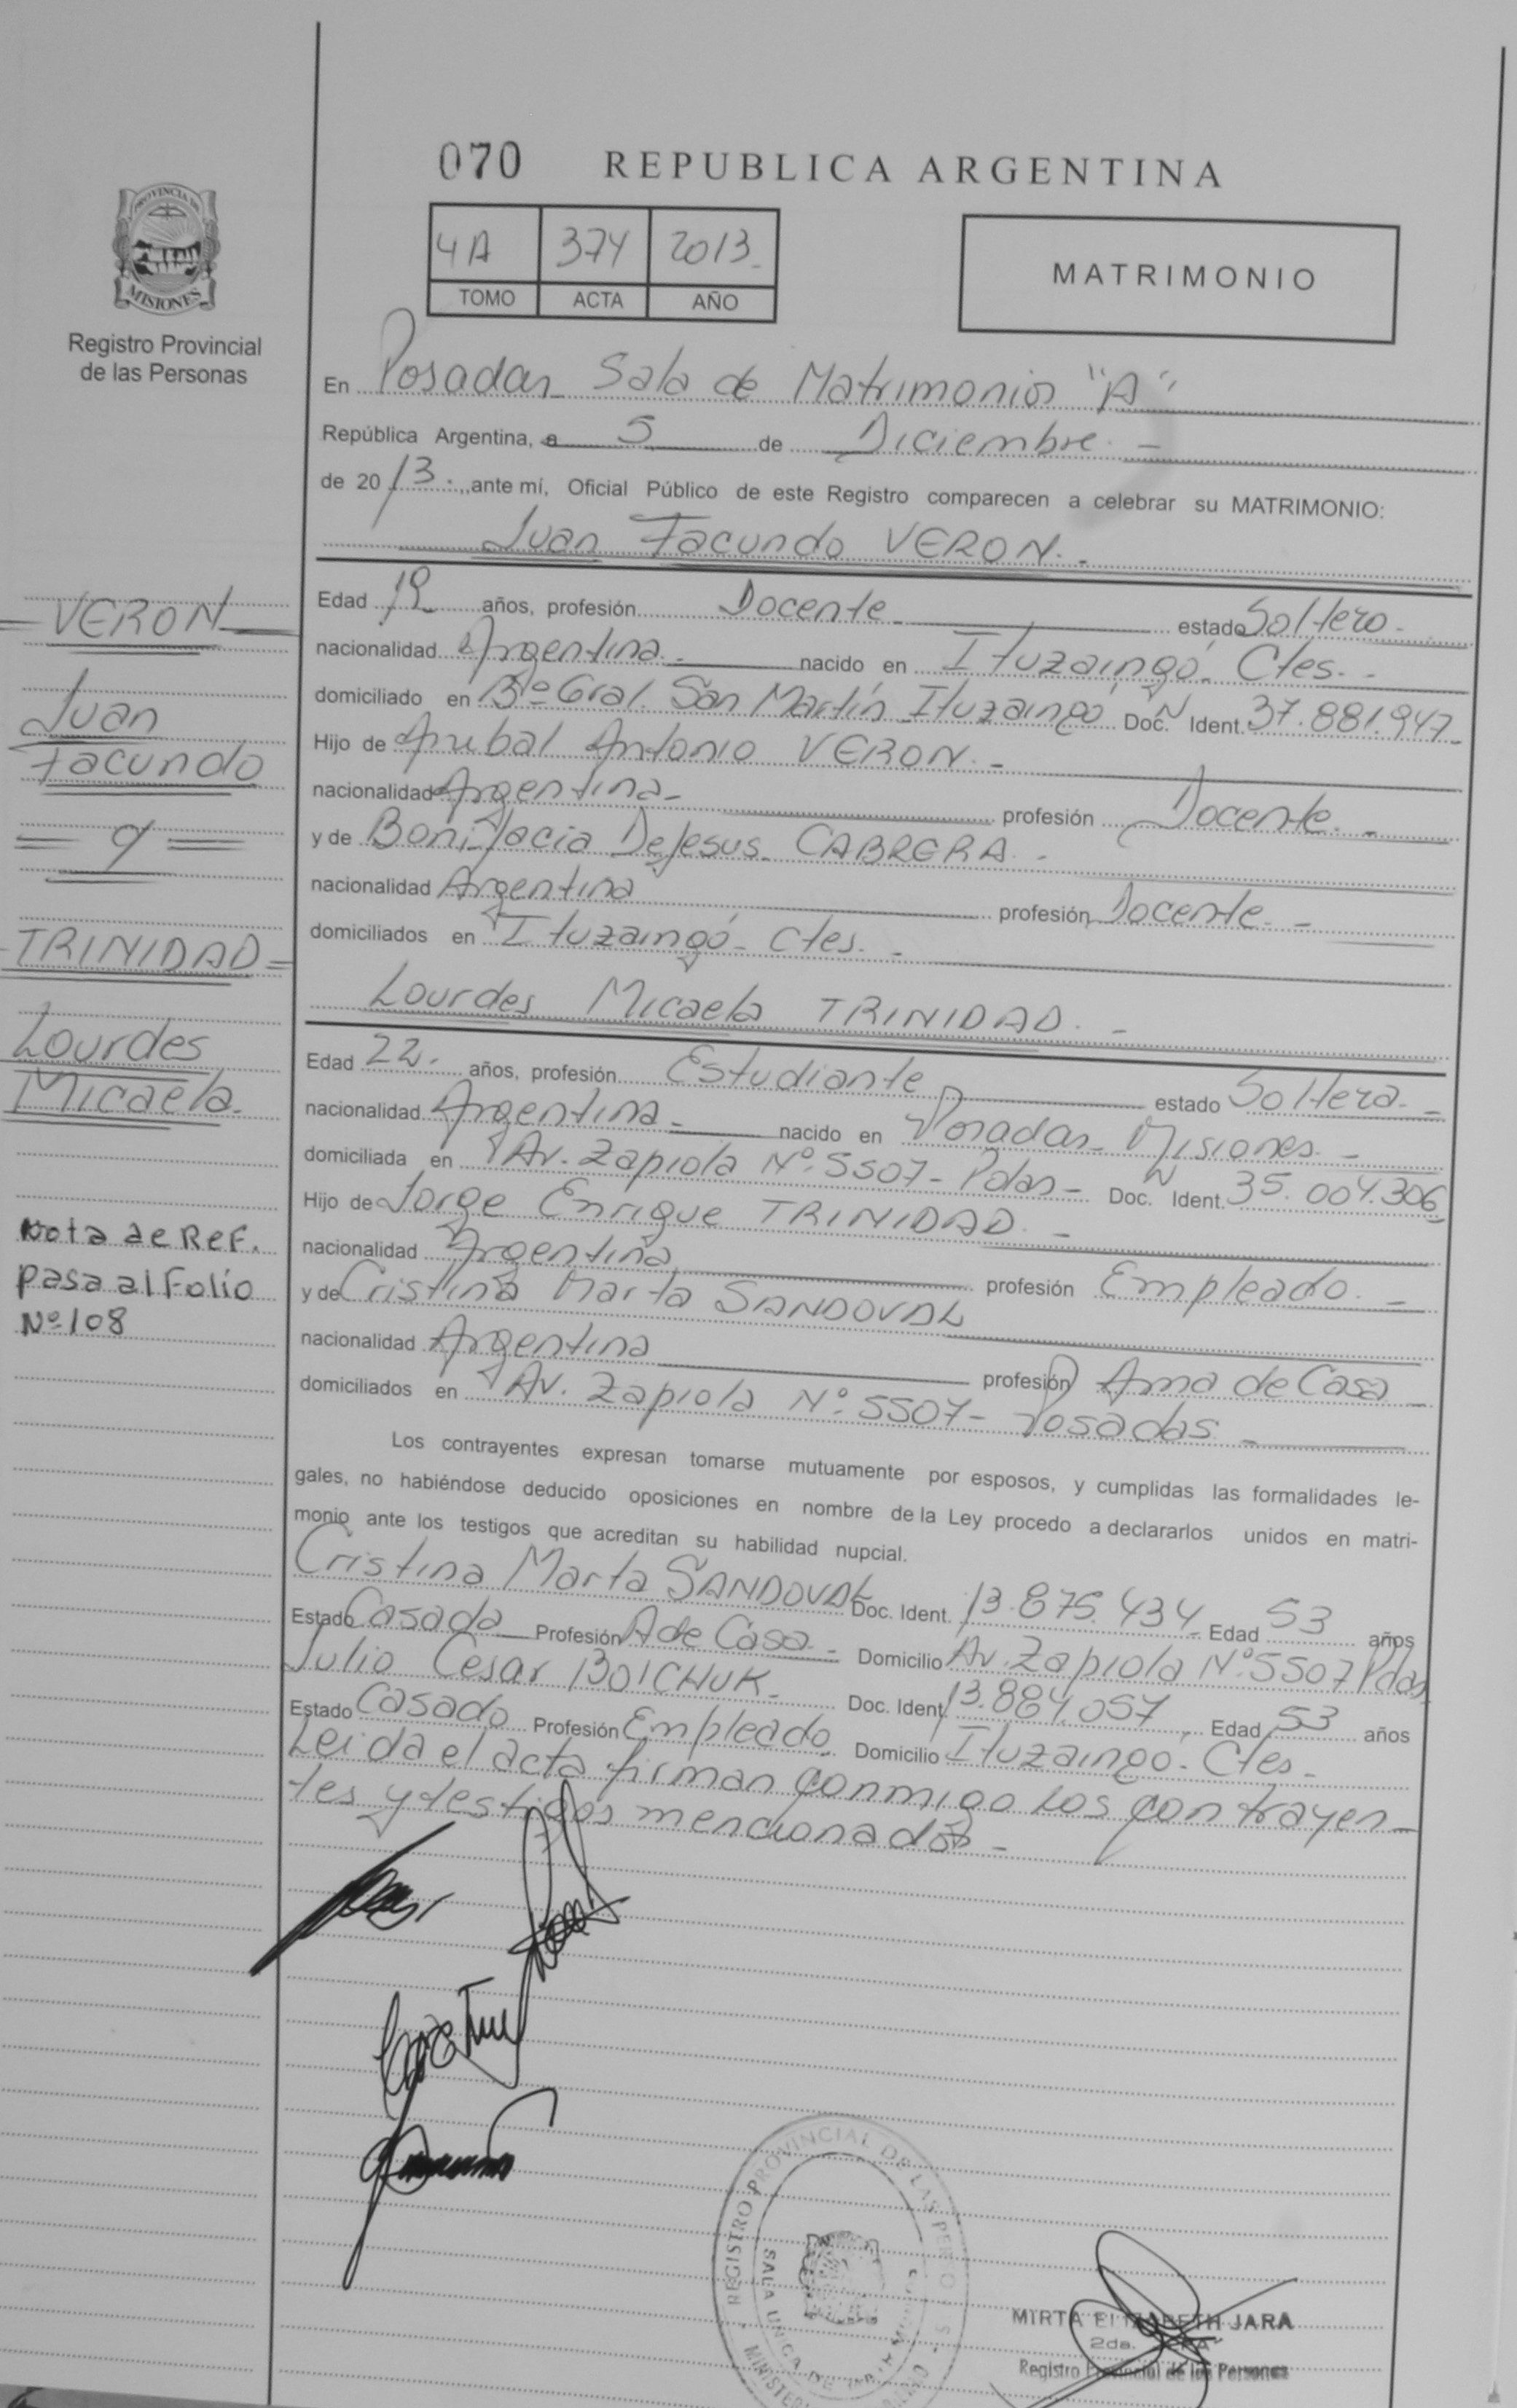 070 REPUBLICA ARGENTINA
4A 374 2013
TOMO ACTA AÑO
MATRIMONIO
PROVINCIA DE
MISIONES
Registro Provincial
de las Personas
En Posadas Sala de Matrimonios "A"
República Argentina, a 5 de Diciembre
de 2013, ante mí, Oficial Público de este Registro comparecen a celebrar su MATRIMONIO:
Juan Facundo VERON.-
Edad años, profesión Docente estado Soltero.-
nacionalidad Argentina.- nacido en Ituzaingó- Ctes.-
domiciliado en Bº Gral. San Martín Ituzaingó Doc. N Ident. 37.881.947-
Hijo de Antonio VERON.-
nacionalidad Argentina- profesión Docente.-
y de Bonifacia DeJesus CABRERA.-
nacionalidad Argentina profesión Docente.-
domiciliados en Ituzaingó- Ctes.-
Lourdes Micaela TRINIDAD.-
Edad 22. años, profesión Estudiante estado Soltera.-
nacionalidad Argentina.- nacido en Posadas- Misiones.-
domiciliada en Av. Zapiola Nº 5507- Pdas- Doc. N Ident. 35.004.306
Hijo de Jorge Enrique TRINIDAD.-
nacionalidad Argentina profesión Empleado.-
y de Cristina Marta SANDOVAL
nacionalidad Argentina profesión Ama de Casa
domiciliados en Av. Zapiola Nº 5507- Posadas-
Los contrayentes expresan tomarse mutuamente por esposos, y cumplidas las formalidades le-
gales, no habiéndose deducido oposiciones en nombre de la Ley procedo a declararlos unidos en matri-
monio ante los testigos que acreditan su habilidad nupcial.
Cristina Marta SANDOVAL Doc. Ident. 13.875.434 Edad 53 años
Estado Casada Profesión A de Casa.- Domicilio Av. Zapiola Nº 5507 Pdas
Julio Cesar BOICHUK.- Doc. Ident. 13.884.057 Edad 53 años
Estado Casado Profesión Empleado Domicilio Ituzaingó- Ctes-
Leida el acta firman conmigo los contrayen-
tes y testigos mencionados-
VERON
Juan
Facundo
= y =
TRINIDAD
Lourdes
Micaela.
Nota de Ref.
pasa al Folio
Nº 108
REGISTRO PROVINCIAL DE LAS
SALA UNICA DE
MIRTA ELIZABETH JARA
2da.
Registro Provincial de las Personas